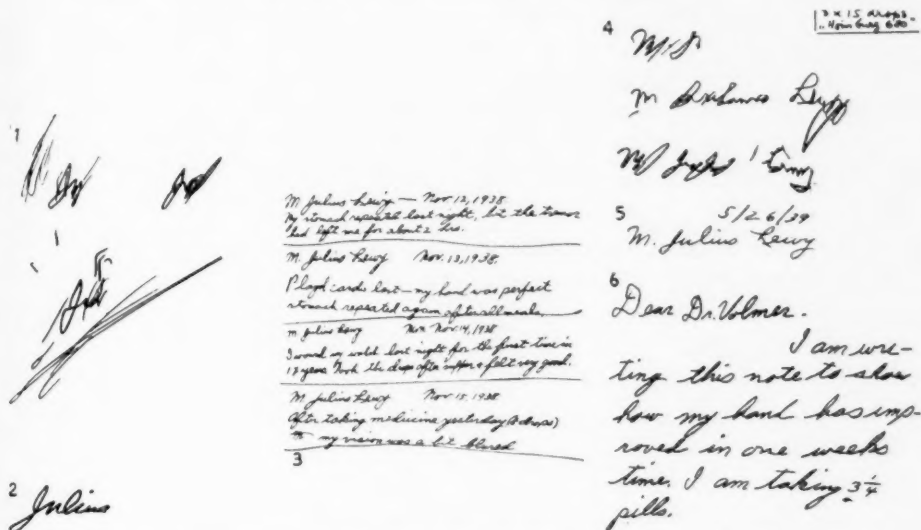 1
2
Julius
M. Julius Lewy — Nov 12, 1938.
My stomach repeated last night, but the tremor
had left me for about 2 hrs.
M. Julius Lewy Nov. 13, 1938.
Played cards last — my hand was perfect
stomach repeated again after all meals.
M. Julius Lewy Nov. 14, 1938
I wound my watch last night for the first time in
years. Took the drops after supper & felt very good.
M. Julius Lewy Nov 15, 1938
After taking medicine yesterday drops)
my vision was a bit blured
3
4
x 15 drops
M.
M Lewy
M
5
5/26/39
M. Julius Lewy
6
Dear Dr. Volmer.
I am wri-
ting this note to show
how my hand has imp-
roved in one weeks
time. I am taking 3 1/4
pills.